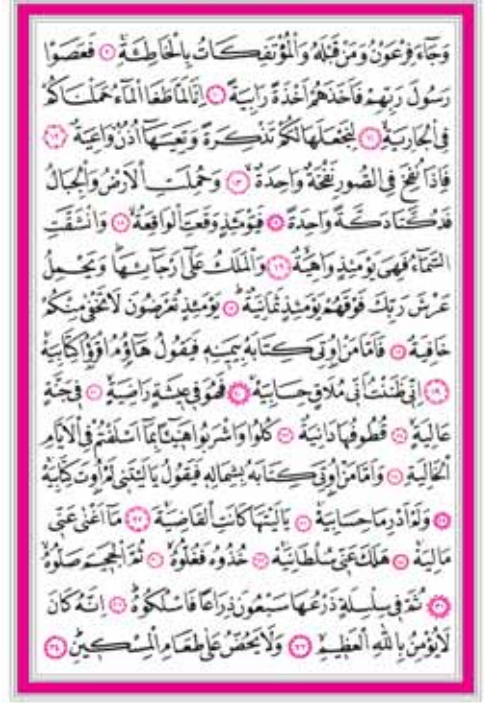 وَجَٓاءَ فِرْعَوْنُ وَمَنْ قَبْلَهُ وَالْمُؤْتَفِكَاتُ بِالْخَاطِئَةِۚ ۝ فَعَصَوْا
رَسُولَ رَبِّهِمْ فَاَخَذَهُمْ اَخْذَةً رَابِيَةً ۝ اِنَّا لَمَّا طَغَا الْمَٓاءُ حَمَلْنَاكُمْ
فِي الْجَارِيَةِۙ ۝ لِنَجْعَلَهَا لَكُمْ تَذْكِرَةً وَتَعِيَهَٓا اُذُنٌ وَاعِيَةٌ ۝
فَاِذَا نُفِخَ فِي الصُّورِ نَفْخَةٌ وَاحِدَةٌۙ ۝ وَحُمِلَتِ الْاَرْضُ وَالْجِبَالُ
فَدُكَّتَا دَكَّةً وَاحِدَةًۙ ۝ فَيَوْمَئِذٍ وَقَعَتِ الْوَاقِعَةُۙ ۝ وَانْشَقَّتِ
السَّمَٓاءُ فَهِيَ يَوْمَئِذٍ وَاهِيَةٌۙ ۝ وَالْمَلَكُ عَلٰٓى اَرْجَٓائِهَاۜ وَيَحْمِلُ
عَرْشَ رَبِّكَ فَوْقَهُمْ يَوْمَئِذٍ ثَمَانِيَةٌۜ ۝ يَوْمَئِذٍ تُعْرَضُونَ لَا تَخْفٰى مِنْكُمْ
خَافِيَةٌ ۝ فَاَمَّا مَنْ اُو۫تِيَ كِتَابَهُ بِيَمِينِه۪ فَيَقُولُ هَٓاؤُمُ اقْرَؤُ۫ا كِتَابِيَهْۚ
۝ اِنّ۪ي ظَنَنْتُ اَنّ۪ي مُلَاقٍ حِسَابِيَهْۚ ۝ فَهُوَ ف۪ي ع۪يشَةٍ رَاضِيَةٍۙ ۝ ف۪ي جَنَّةٍ
عَالِيَةٍۙ ۝ قُطُوفُهَا دَانِيَةٌ ۝ كُلُوا وَاشْرَبُوا هَن۪ٓيـًٔا بِمَٓا اَسْلَفْتُمْ فِي الْاَيَّامِ
الْخَالِيَةِ ۝ وَاَمَّا مَنْ اُو۫تِيَ كِتَابَهُ بِشِمَالِه۪ فَيَقُولُ يَا لَيْتَن۪ي لَمْ اُو۫تَ كِتَابِيَهْۚ
۝ وَلَمْ اَدْرِ مَا حِسَابِيَهْۚ ۝ يَا لَيْتَهَا كَانَتِ الْقَاضِيَةَۚ ۝ مَٓا اَغْنٰى عَنّ۪ي
مَالِيَهْۚ ۝ هَلَكَ عَنّ۪ي سُلْطَانِيَهْۚ ۝ خُذُوهُ فَغُلُّوهُۙ ۝ ثُمَّ الْجَح۪يمَ صَلُّوهُۙ
۝ ثُمَّ ف۪ي سِلْسِلَةٍ ذَرْعُهَا سَبْعُونَ ذِرَاعًا فَاسْلُكُوهُۜ ۝ اِنَّهُ كَانَ
لَا يُؤْمِنُ بِاللّٰهِ الْعَظ۪يمِۙ ۝ وَلَا يَحُضُّ عَلٰى طَعَامِ الْمِسْك۪ينِۜ ۝